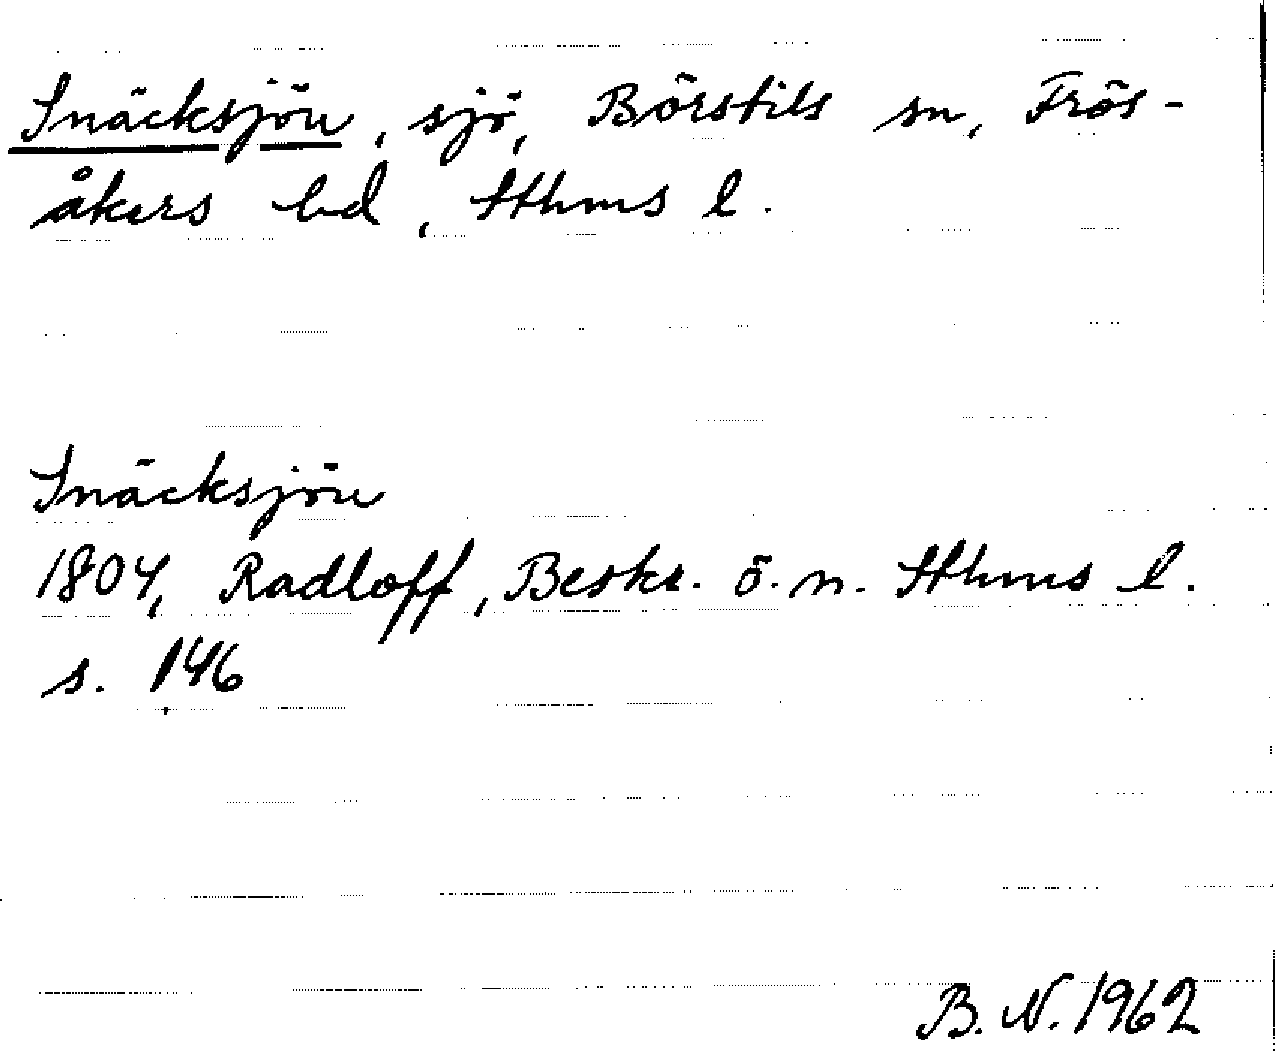 Snäcksjön, sjö, Börstils sn, Frös-
åkers hd, Sthms l.
Snäcksjön
1804, Radloff, Beskr. ö. n. Sthms l.
s. 146
B. N. 1962